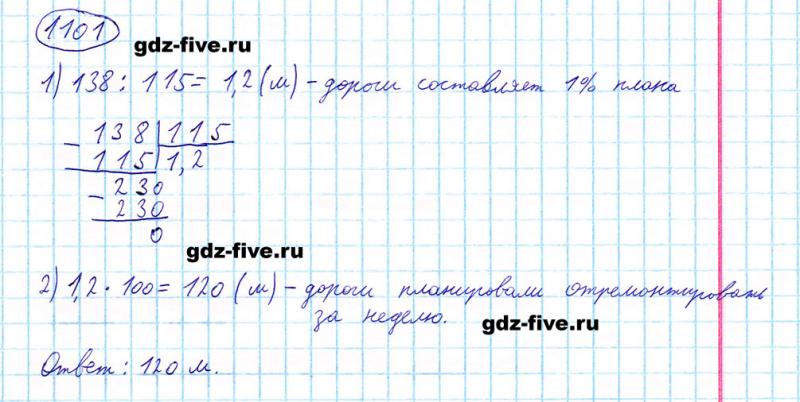 1101
gdz-five.ru
1) 138 : 115 = 1,2 (м) - дороги составляет 1% плана
138 115
115 1,2
230
230
0
gdz-five.ru
2) 1,2 · 100 = 120 (м) - дороги планировали отремонтировать
за неделю.
gdz-five.ru
Ответ: 120 м.